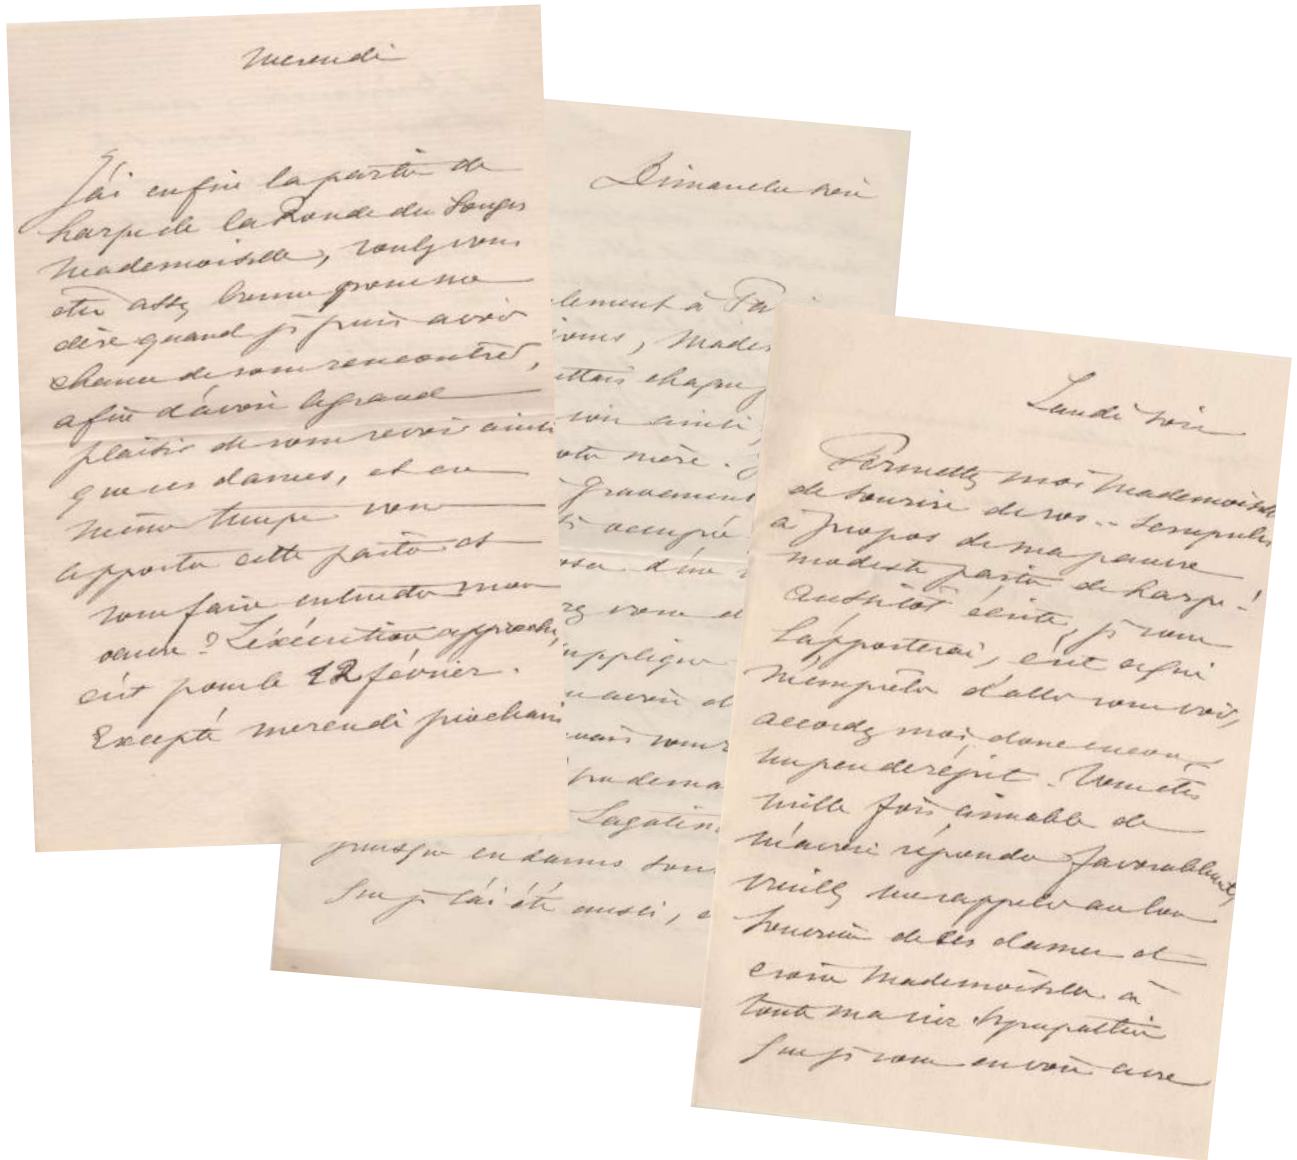 Mercredi
J'ai enfin la partie de
harpe de la Ronde du Songe
Mademoiselle, voulez vous
être assez bonne pour me
dire quand je puis avoir
chance de vous rencontrer,
afin d'avoir le grand
plaisir de vous revoir ainsi
que ces dames, et en
même temps vous
apporter cette partie et
vous faire entendre mon
œuvre ? L'exécution approche,
c'est pour le 12 février.
Excepté mercredi prochain
Dimanche soir
lement à Pa
vous, Mades
ettais chaque j
soir ainsi,
votre mère.
gravement
si occupée
d'une
vous d
supplique
avoir d
vais vous
Lagatine
puisque ces dames sont
que je l'ai été aussi,
Lundi soir
Permettez moi Mademoiselle
de sourire de vos .. scrupules
à propos de ma pauvre
modeste partie de harpe !
Aussitôt écrite, je vous
l'apporterai, c'est ce qui
m'empêche d'aller vous voir,
accordez moi donc encore
un peu de répit. Vous êtes
mille fois aimable de
m'avoir répondu favorablement,
veuillez me rappeler au bon
souvenir de ces dames et
croire Mademoiselle à
toute ma vive sympathie
que je vous envoie avec